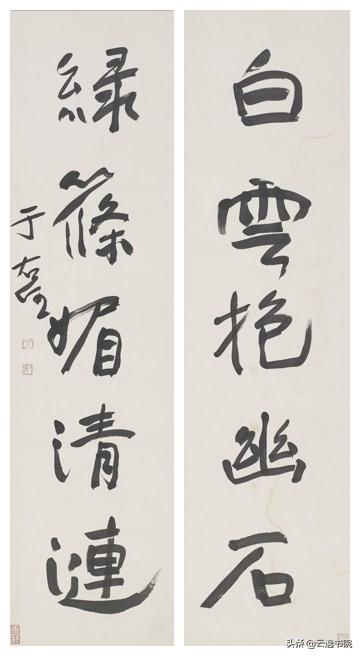 白雲抱幽石
綠篠媚清漣
于右任
头条@云逸书院